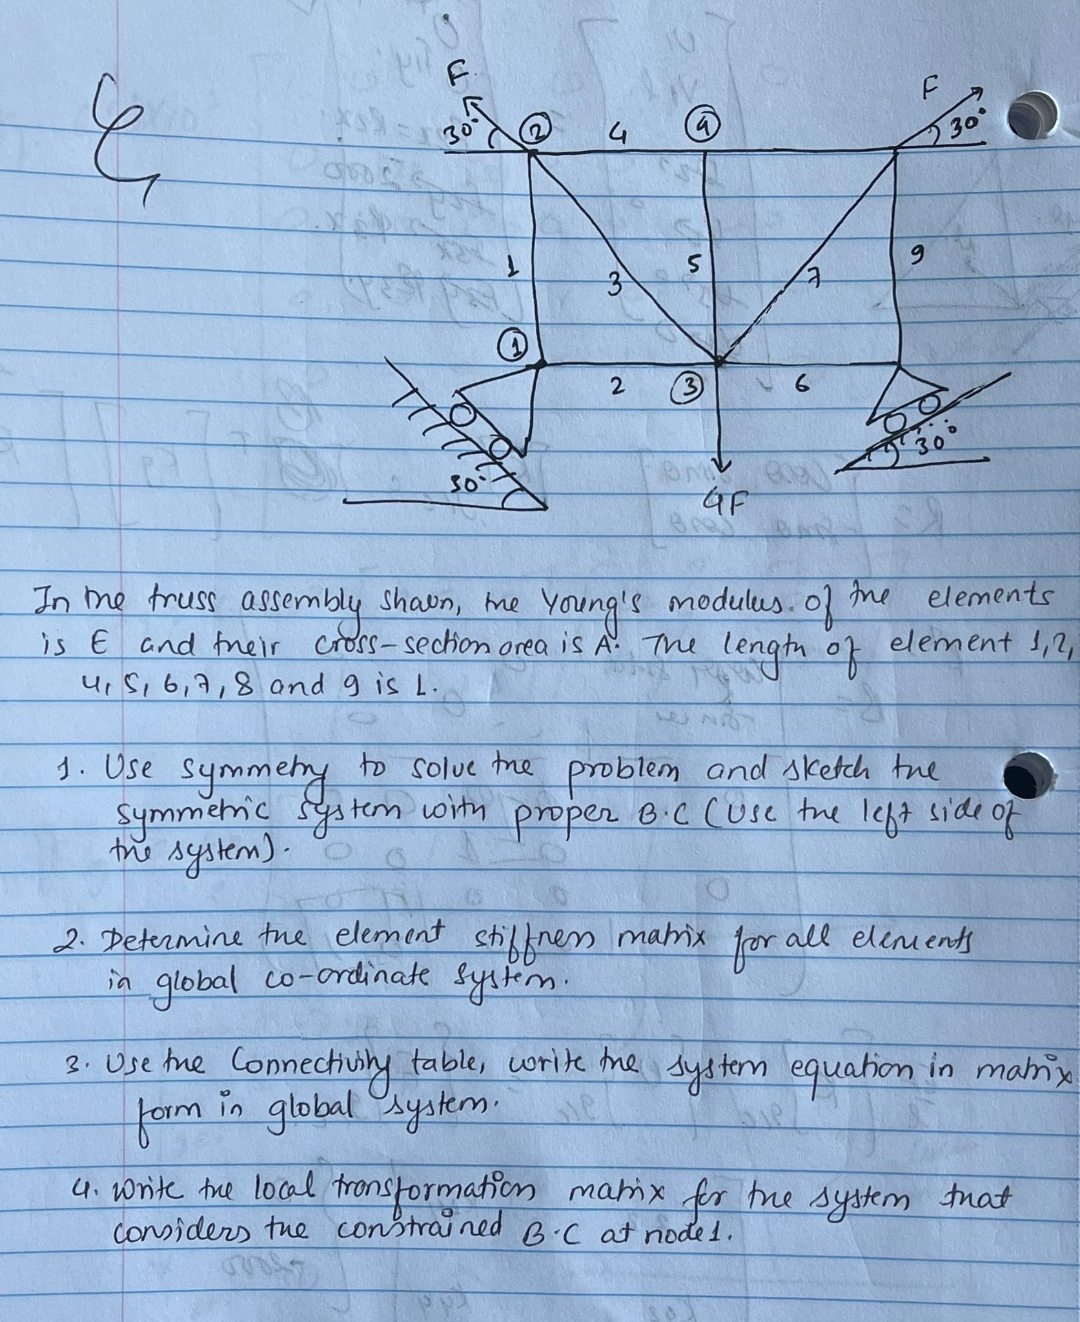 F
F
30°
②
4
④
30°
1
3
5
7
9
①
2
③
6
30°
30°
4F
In the truss assembly shown, the Young's modulus of the elements
is E and their cross-section area is A. The length of element 1,2,
4, 5, 6, 7, 8 and 9 is L.
1. Use symmetry to solve the problem and sketch the
symmetric system with proper B.C (Use the left side of
the system).
2. Determine the element stiffness matrix for all elements
in global co-ordinate system.
3. Use the Connectivity table, write the system equation in matrix
form in global system.
4. Write the local transformation matrix for the system that
considers the constrained B.C at node 1.